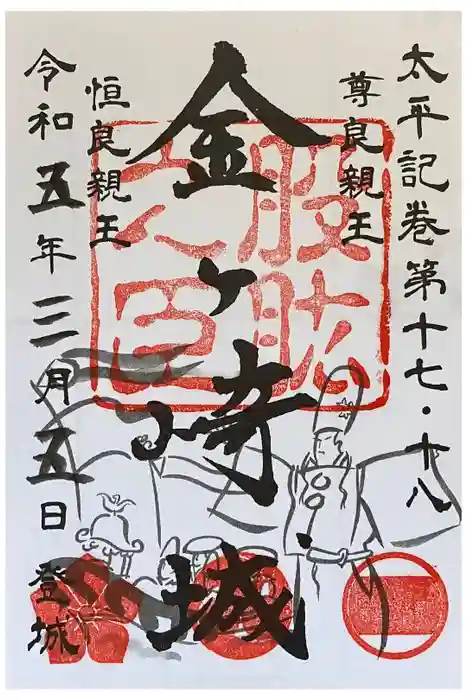 太平記巻第十七・十八
尊良親王
金ヶ崎城
恒良親王
令和五年三月五日 登城
股肱
之臣